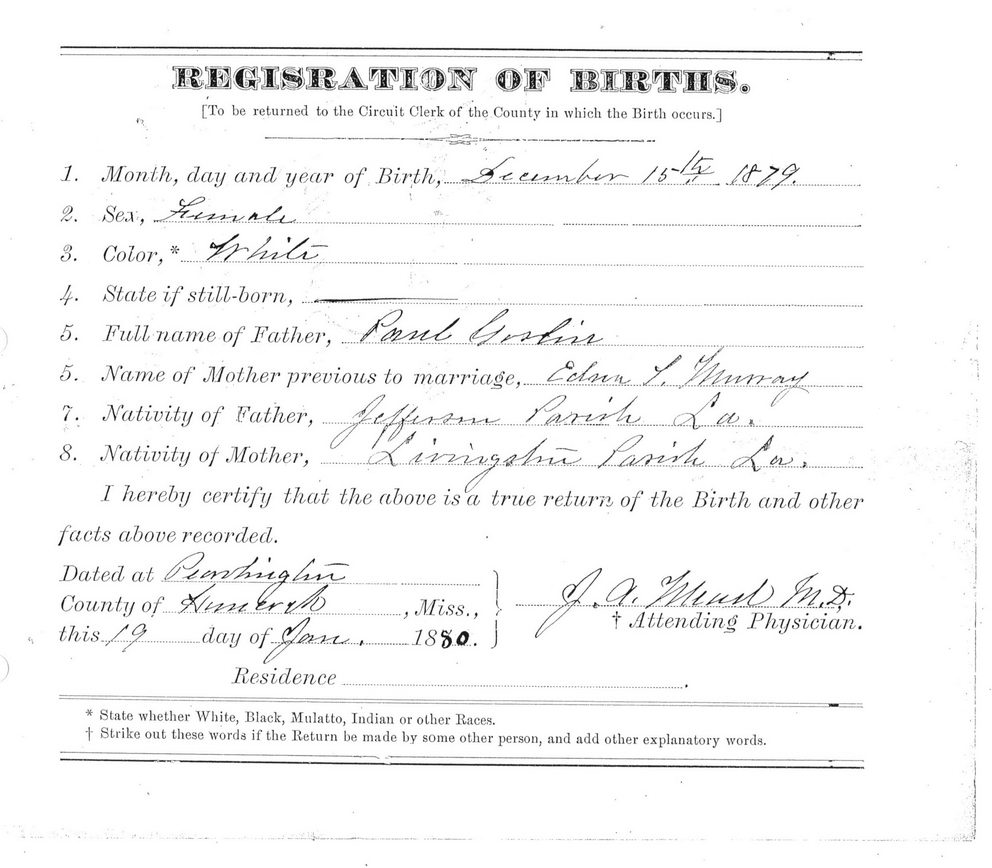 REGISRATION OF BIRTHS.
[To be returned to the Circuit Clerk of the County in which the Birth occurs.]
1. Month, day and year of Birth, December 15th 1879.
2. Sex, Female
3. Color,* White
4. State if still-born,
5. Full name of Father, Paul
5. Name of Mother previous to marriage, Edna S. Murray
7. Nativity of Father, Jefferson Parish La.
8. Nativity of Mother, Livingston Parish La.
I hereby certify that the above is a true return of the Birth and other
facts above recorded.
Dated at Pearlington
County of Hancock, Miss.,
this 19 day of Jan. 1880.
J. A. Mead M.D.
† Attending Physician.
Residence
* State whether White, Black, Mulatto, Indian or other Races.
† Strike out these words if the Return be made by some other person, and add other explanatory words.